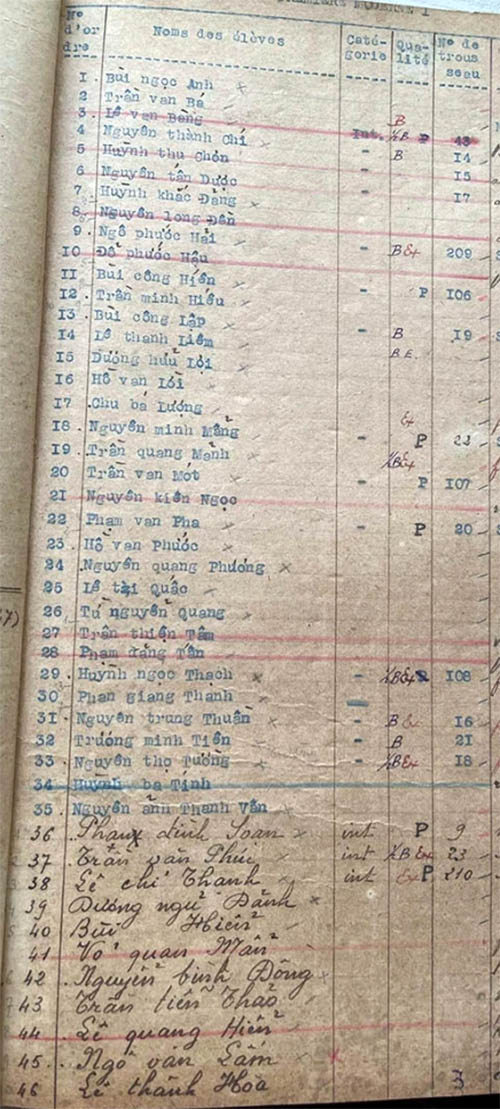 N° d'or dre Noms des élèves Caté- gorie Qua- lité N° de trous seau
1. Bùi ngọc Anh
2 Trần van Bá
3. Lê van Bằng B
4 Nguyễn thành Chí Int. ½B P 43
5 Huỳnh thu Chỏn - B 14
6. Nguyễn tấn Dược - 15
7. Huỳnh khắc Đảng - 17
8. Nguyễn long Đển
9. Ngô phước Hải
10. Đỗ phước Hậu - B Ex 209
11 Bùi công Hiển
12. Trần minh Hiếu - P 106
13. Bùi công Lập
14 Lê thanh Liêm - B 19
15 Dương hửu Lợi B E
16 Hồ van Lôi
17. Chu bá Lượng
18. Nguyễn minh Mẫng Ex - P 22
19. Trần quang Mạnh ½B Ex
20 Trần van Một - P 107
21 Nguyễn kiên Ngọc
22 Phạm van Pha - P 20
23. Hồ van Phước
24. Nguyễn quang Phương
25 Lê tài Quấc
26. Từ nguyên Quang
27 Trần thiện Tâm
28 Phạm đăng Tấn
29. Huỳnh ngọc Thạch - ½B Ex 108
30 Phan giang Thạnh
31. Nguyễn trung Thuần - B Ex 16
32 Trương minh Tiên - B 21
33. Nguyễn thọ Tường - ½B Ex 18
34 Huỳnh ba Tính
35. Nguyễn ảnh Thanh Vân
36 Phan đình Soạn int P 9
37. Trần văn Phúc int ½B Ex 23
38 Lê chí Thanh int Ex P 210
39 Dương ngự Đảnh
40 Bùi Hiển
41 Võ quan Mẩn
42. Nguyễn bình Đông
43 Trần tiến Thảo
44. Lê quang Hiển
45. Ngô văn Lắm
46 Lê thành Hòa 3